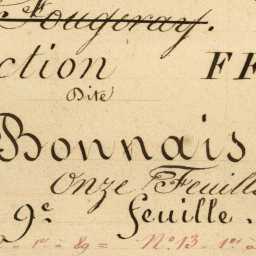 Fougeray.
ction FF
Dite
Bonnais
Onze Feuill
9e feuille.
No 13